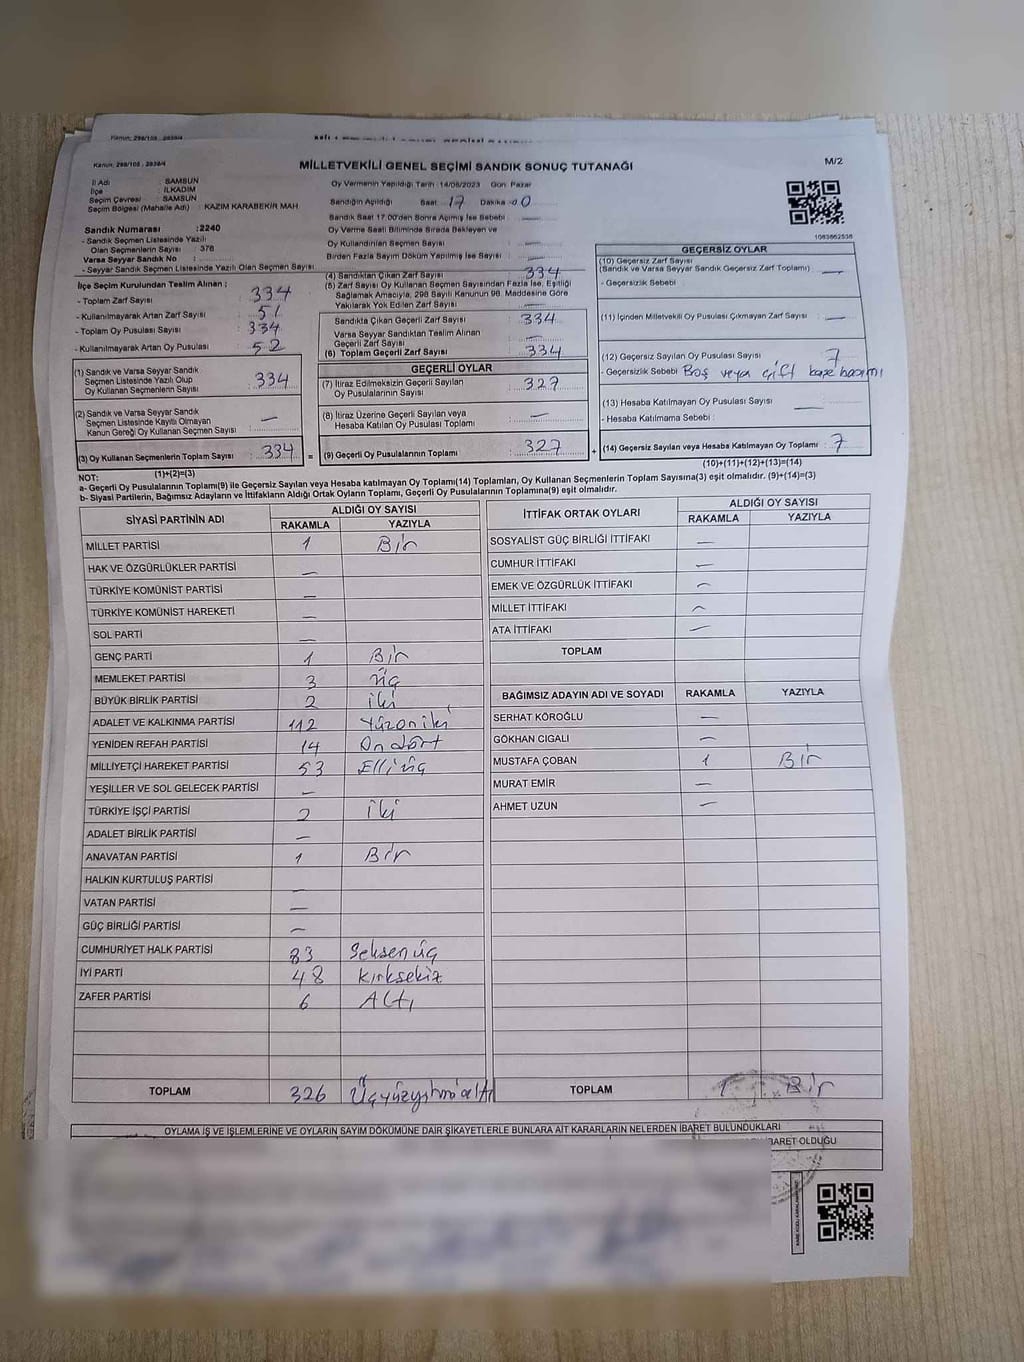 Kanun: 298/105 - 2839/4
Kanun: 298/105 - 2839/4
MİLLETVEKİLİ GENEL SEÇİMİ SANDIK SONUÇ TUTANAĞI
M/2
İl Adı : SAMSUN
İlçe : İLKADIM
Seçim Çevresi : SAMSUN
Seçim Bölgesi (Mahalle Adı) : KAZIM KARABEKİR MAH
Sandık Numarası :2240
- Sandık Seçmen Listesinde Yazılı
Olan Seçmenlerin Sayısı : 378
Varsa Seyyar Sandık No :
- Seyyar Sandık Seçmen Listesinde Yazılı Olan Seçmen Sayısı
Oy Vermenin Yapıldığı Tarih :14/05/2023 Gün: Pazar
Sandığın Açıldığı Saat : 17 Dakika : 00
Sandık Saat 17.00'den Sonra Açılmış İse Sebebi :
Oy Verme Saati Bitiminde Sırada Bekleyen ve
Oy Kullandırılan Seçmen Sayısı :
Birden Fazla Sayım Dökümü Yapılmış İse Sayısı :
1083862538
İlçe Seçim Kurulundan Teslim Alınan ;
- Toplam Zarf Sayısı : 334
- Kullanılmayarak Artan Zarf Sayısı : 51
- Toplam Oy Pusulası Sayısı : 334
- Kullanılmayarak Artan Oy Pusulası : 52
(1) Sandık ve Varsa Seyyar Sandık
Seçmen Listesinde Yazılı Olup
Oy Kullanan Seçmenlerin Sayısı : 334
(2) Sandık ve Varsa Seyyar Sandık
Seçmen Listesinde Kayıtlı Olmayan
Kanun Gereği Oy Kullanan Seçmen Sayısı : —
(3) Oy Kullanan Seçmenlerin Toplam Sayısı : 334
(1)+(2)=(3)
(4) Sandıktan Çıkan Zarf Sayısı : 334
(5) Zarf Sayısı Oy Kullanan Seçmen Sayısından Fazla İse, Eşitliği
Sağlamak Amacıyla, 298 Sayılı Kanunun 98. Maddesine Göre
Yakılarak Yok Edilen Zarf Sayısı : —
Sandıkta Çıkan Geçerli Zarf Sayısı : 334
Varsa Seyyar Sandıktan Teslim Alınan
Geçerli Zarf Sayısı : —
(6) Toplam Geçerli Zarf Sayısı : 334
GEÇERLİ OYLAR
(7) İtiraz Edilmeksizin Geçerli Sayılan
Oy Pusulalarının Sayısı : 327
(8) İtiraz Üzerine Geçerli Sayılan veya
Hesaba Katılan Oy Pusulası Toplamı : —
= (9) Geçerli Oy Pusulalarının Toplamı : 327 +
GEÇERSİZ OYLAR
(10) Geçersiz Zarf Sayısı
(Sandık ve Varsa Seyyar Sandık Geçersiz Zarf Toplamı) : —
- Geçersizlik Sebebi :
(11) İçinden Milletvekili Oy Pusulası Çıkmayan Zarf Sayısı : —
(12) Geçersiz Sayılan Oy Pusulası Sayısı : 7
- Geçersizlik Sebebi : Boş veya çift kaşe basımı
(13) Hesaba Katılmayan Oy Pusulası Sayısı : —
- Hesaba Katılmama Sebebi :
(14) Geçersiz Sayılan veya Hesaba Katılmayan Oy Toplamı : 7
(10)+(11)+(12)+(13)=(14)
NOT:
a- Geçerli Oy Pusulalarının Toplamı(9) ile Geçersiz Sayılan veya Hesaba katılmayan Oy Toplamı(14) Toplamları, Oy Kullanan Seçmenlerin Toplam Sayısına(3) eşit olmalıdır. (9)+(14)=(3)
b- Siyasi Partilerin, Bağımsız Adayların ve İttifakların Aldığı Ortak Oyların Toplamı, Geçerli Oy Pusulalarının Toplamına(9) eşit olmalıdır.
SİYASİ PARTİNİN ADI ALDIĞI OY SAYISI
RAKAMLA YAZIYLA
MİLLET PARTİSİ 1 Bir
HAK VE ÖZGÜRLÜKLER PARTİSİ —
TÜRKİYE KOMÜNİST PARTİSİ —
TÜRKİYE KOMÜNİST HAREKETİ —
SOL PARTİ —
GENÇ PARTİ 1 Bir
MEMLEKET PARTİSİ 3 üç
BÜYÜK BİRLİK PARTİSİ 2 iki
ADALET VE KALKINMA PARTİSİ 112 Yüzoniki
YENİDEN REFAH PARTİSİ 14 Ondört
MİLLİYETÇİ HAREKET PARTİSİ 53 Elliüç
YEŞİLLER VE SOL GELECEK PARTİSİ —
TÜRKİYE İŞÇİ PARTİSİ 2 iki
ADALET BİRLİK PARTİSİ —
ANAVATAN PARTİSİ 1 Bir
HALKIN KURTULUŞ PARTİSİ —
VATAN PARTİSİ —
GÜÇ BİRLİĞİ PARTİSİ —
CUMHURİYET HALK PARTİSİ 83 Seksenüç
İYİ PARTİ 48 Kırksekiz
ZAFER PARTİSİ 6 Altı
TOPLAM 326 Üçyüzyirmialtı
İTTİFAK ORTAK OYLARI ALDIĞI OY SAYISI
RAKAMLA YAZIYLA
SOSYALİST GÜÇ BİRLİĞİ İTTİFAKI —
CUMHUR İTTİFAKI —
EMEK VE ÖZGÜRLÜK İTTİFAKI —
MİLLET İTTİFAKI —
ATA İTTİFAKI —
TOPLAM
BAĞIMSIZ ADAYIN ADI VE SOYADI RAKAMLA YAZIYLA
SERHAT KÖROĞLU —
GÖKHAN CIGALI —
MUSTAFA ÇOBAN 1 Bir
MURAT EMİR —
AHMET UZUN —
TOPLAM 1 Bir
OYLAMA İŞ VE İŞLEMLERİNE VE OYLARIN SAYIM DÖKÜMÜNE DAİR ŞİKAYETLERLE BUNLARA AİT KARARLARIN NELERDEN İBARET BULUNDUKLARI
İBARET OLDUĞU